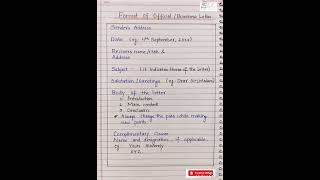 Format of Official/Business Letter
Sender's Address
Date (eg: 4th September, 2021)
Receivers name/desk &
Address
Subject - (It indicates theme of the letter)
Salutation/Greetings (eg: Dear Sir/Madam)
Body of the letter
1. Introduction
2. Main content
3. Conclusion
Always change the para while making
new points.
Complimentary Closure
Name and designation, if applicable
eg Yours sincerely
XYZ
SUBSCRIBE